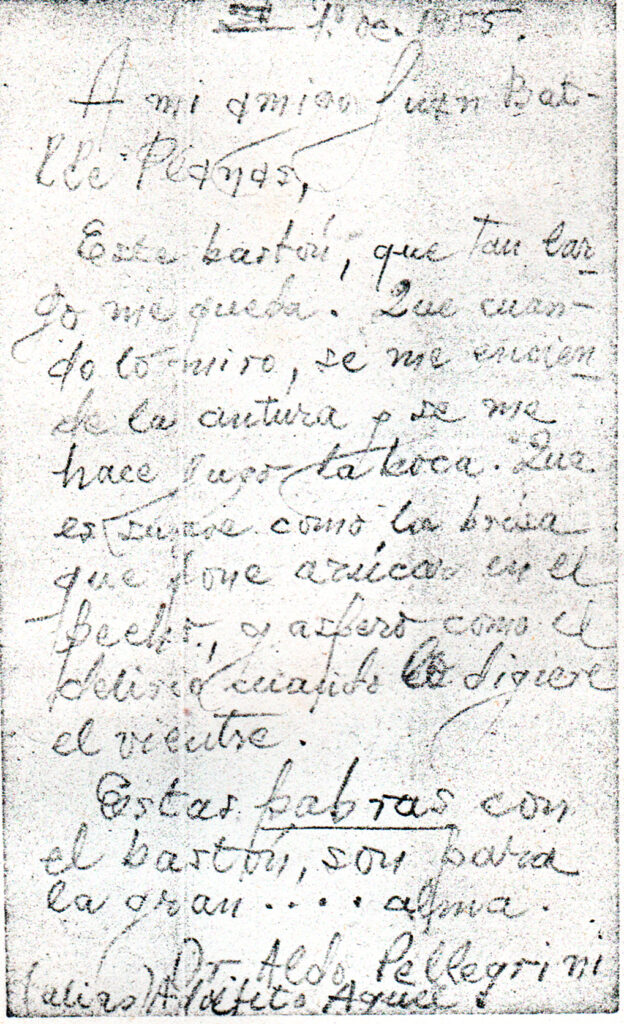 1º de. 1955.
A mi amigo Juan Bat-
lle Planas,
Este bastón, que tan lar-
go me queda. Que cuan-
do lo miro, se me encien-
de la cintura y se me
hace la boca. Que
es suave como la brisa
que pone azúcar en el
pecho, y aspero como el
delirio cuando lo digiere
el vientre.
Estas pabras con
el bastón, son para
la gran .... alma.
Dr Aldo Pellegrini
(alias) Adolfito